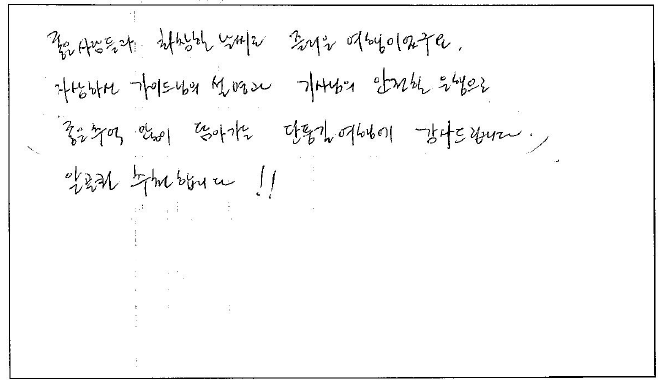 좋은사람들과 화창한 날씨로 즐거운 여행이었구요.
자상하신 가이드님의 설명과 기사님의 안전한 운행으로
좋은추억 많이 담아가는 단풍길여행에 감사드립니다.
알콜판 추천합니다 !!